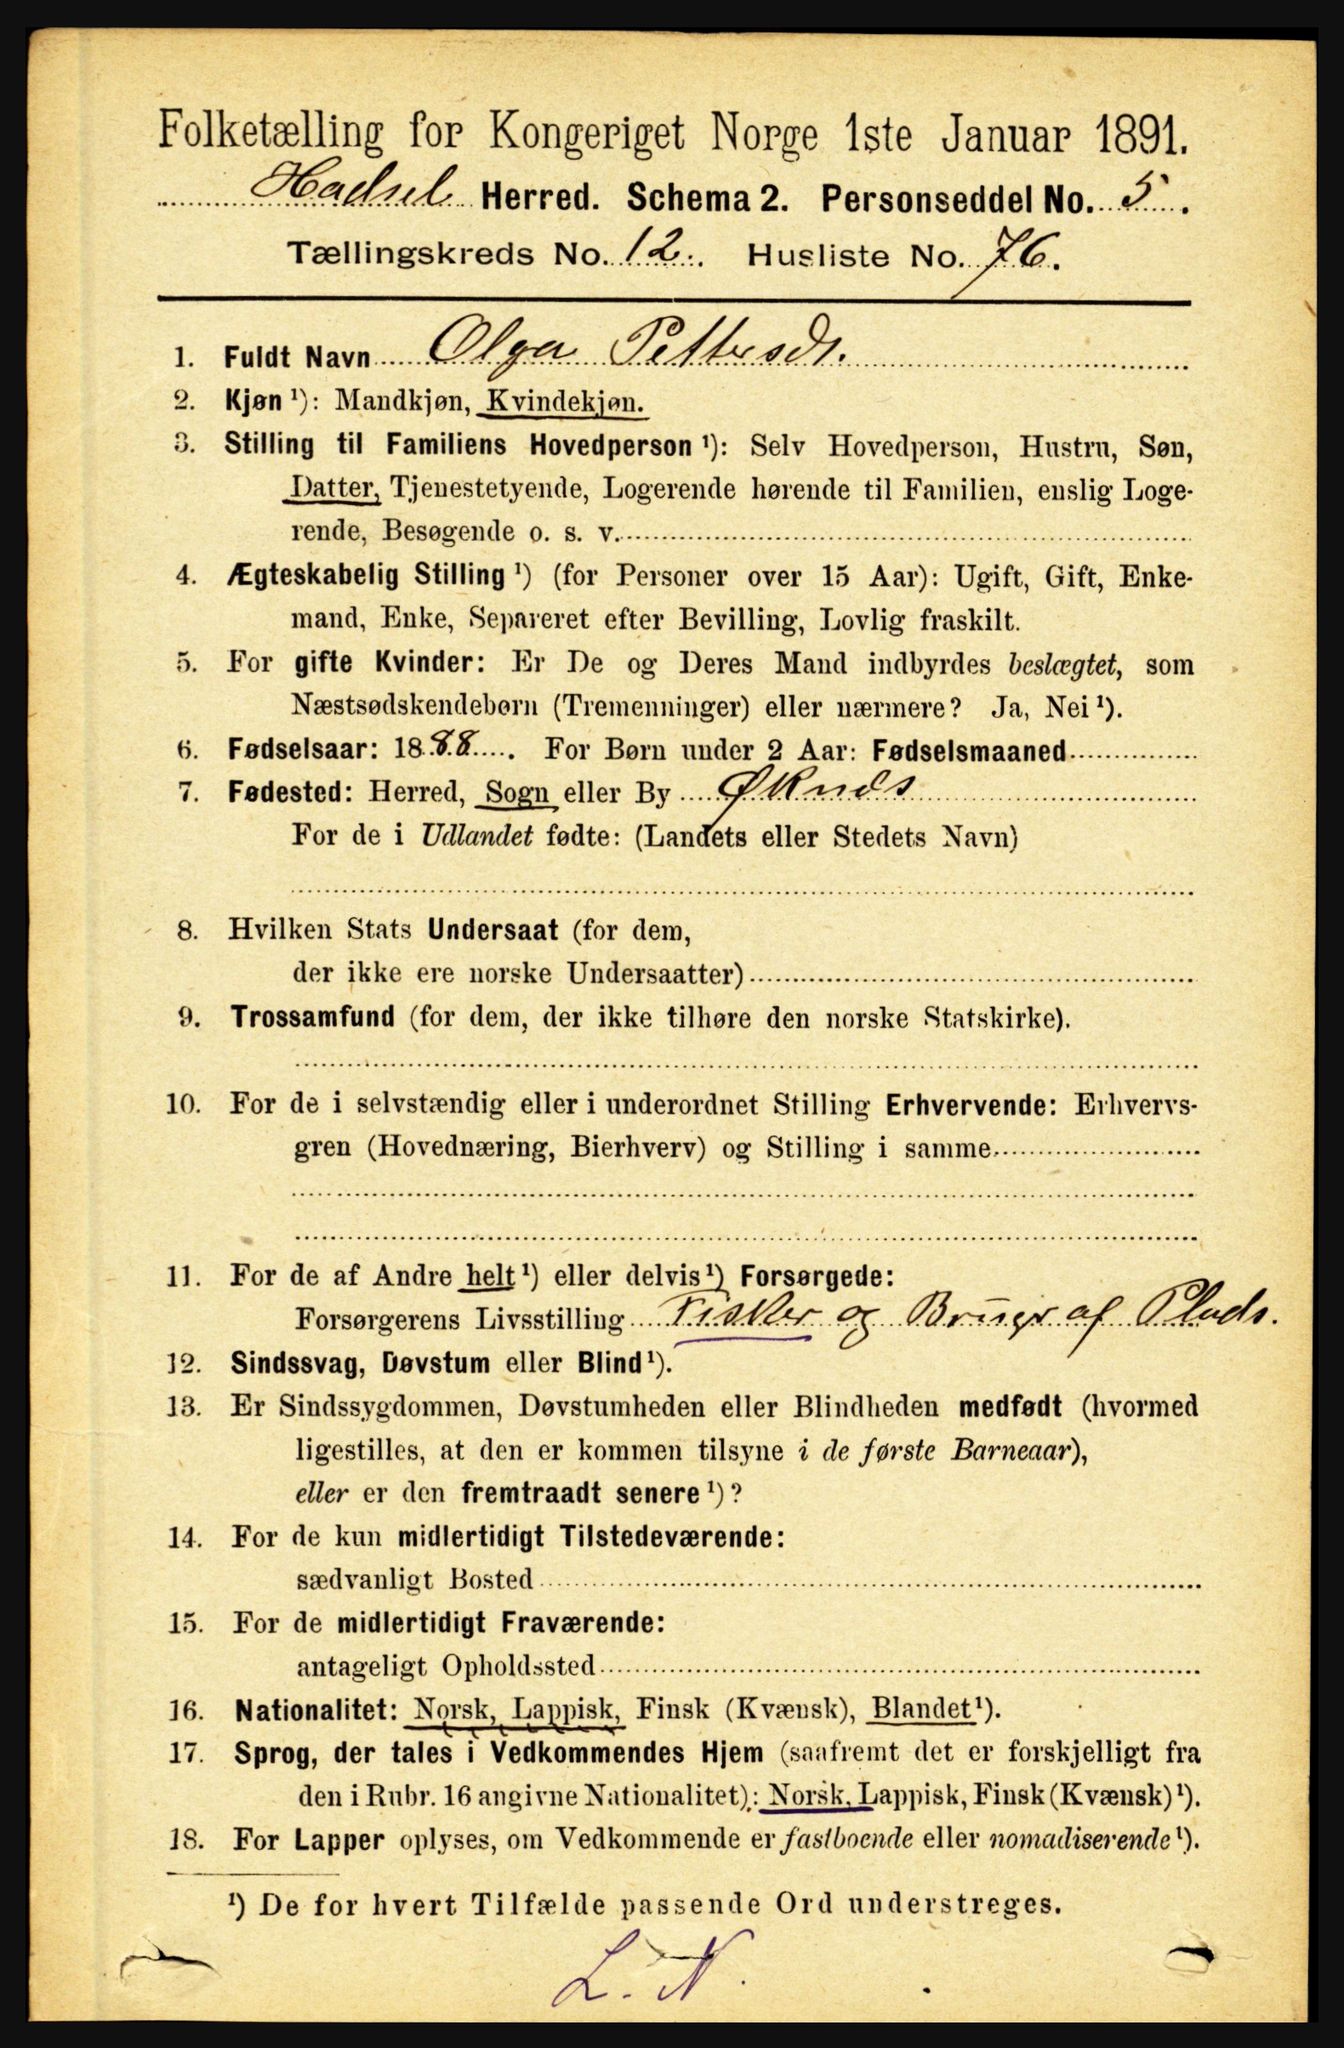 Folketælling for Kongeriget Norge 1ste Januar 1891.
Hadsel Herred. Schema 2. Personseddel No. 5.
Tællingskreds No. 12. Husliste No. 76.
1. Fuldt Navn Olga Pettersdt.
2. Kjøn ¹): Mandkjøn, Kvindekjøn.
3. Stilling til Familiens Hovedperson ¹): Selv Hovedperson, Hustru, Søn,
Datter, Tjenestetyende, Logerende hørende til Familien, enslig Loge-
rende, Besøgende o. s. v.
4. Ægteskabelig Stilling ¹) (for Personer over 15 Aar): Ugift, Gift, Enke-
mand, Enke, Separeret efter Bevilling, Lovlig fraskilt.
5. For gifte Kvinder: Er De og Deres Mand indbyrdes beslægtet, som
Næstsødskendebørn (Tremenninger) eller nærmere? Ja, Nei ¹).
6. Fødselsaar: 1888. For Børn under 2 Aar: Fødselsmaaned
7. Fødested: Herred, Sogn eller By Øknes
For de i Udlandet fødte: (Landets eller Stedets Navn)
8. Hvilken Stats Undersaat (for dem,
der ikke ere norske Undersaatter)
9. Trossamfund (for dem, der ikke tilhøre den norske Statskirke).
10. For de i selvstændig eller i underordnet Stilling Erhvervende: Erhvervs-
gren (Hovednæring, Bierhverv) og Stilling i samme
11. For de af Andre helt ¹) eller delvis ¹) Forsørgede:
Forsørgerens Livsstilling Fisker og Brugr af Plads.
12. Sindssvag, Døvstum eller Blind ¹).
13. Er Sindssygdommen, Døvstumheden eller Blindheden medfødt (hvormed
ligestilles, at den er kommen tilsyne i de første Barneaar),
eller er den fremtraadt senere ¹)?
14. For de kun midlertidigt Tilstedeværende:
sædvanligt Bosted
15. For de midlertidigt Fraværende:
antageligt Opholdssted
16. Nationalitet: Norsk, Lappisk, Finsk (Kvænsk), Blandet ¹).
17. Sprog, der tales i Vedkommendes Hjem (saafremt det er forskjelligt fra
den i Rubr. 16 angivne Nationalitet): Norsk, Lappisk, Finsk (Kvænsk) ¹).
18. For Lapper oplyses, om Vedkommende er fastboende eller nomadiserende ¹).
¹) De for hvert Tilfælde passende Ord understreges.
L. N.